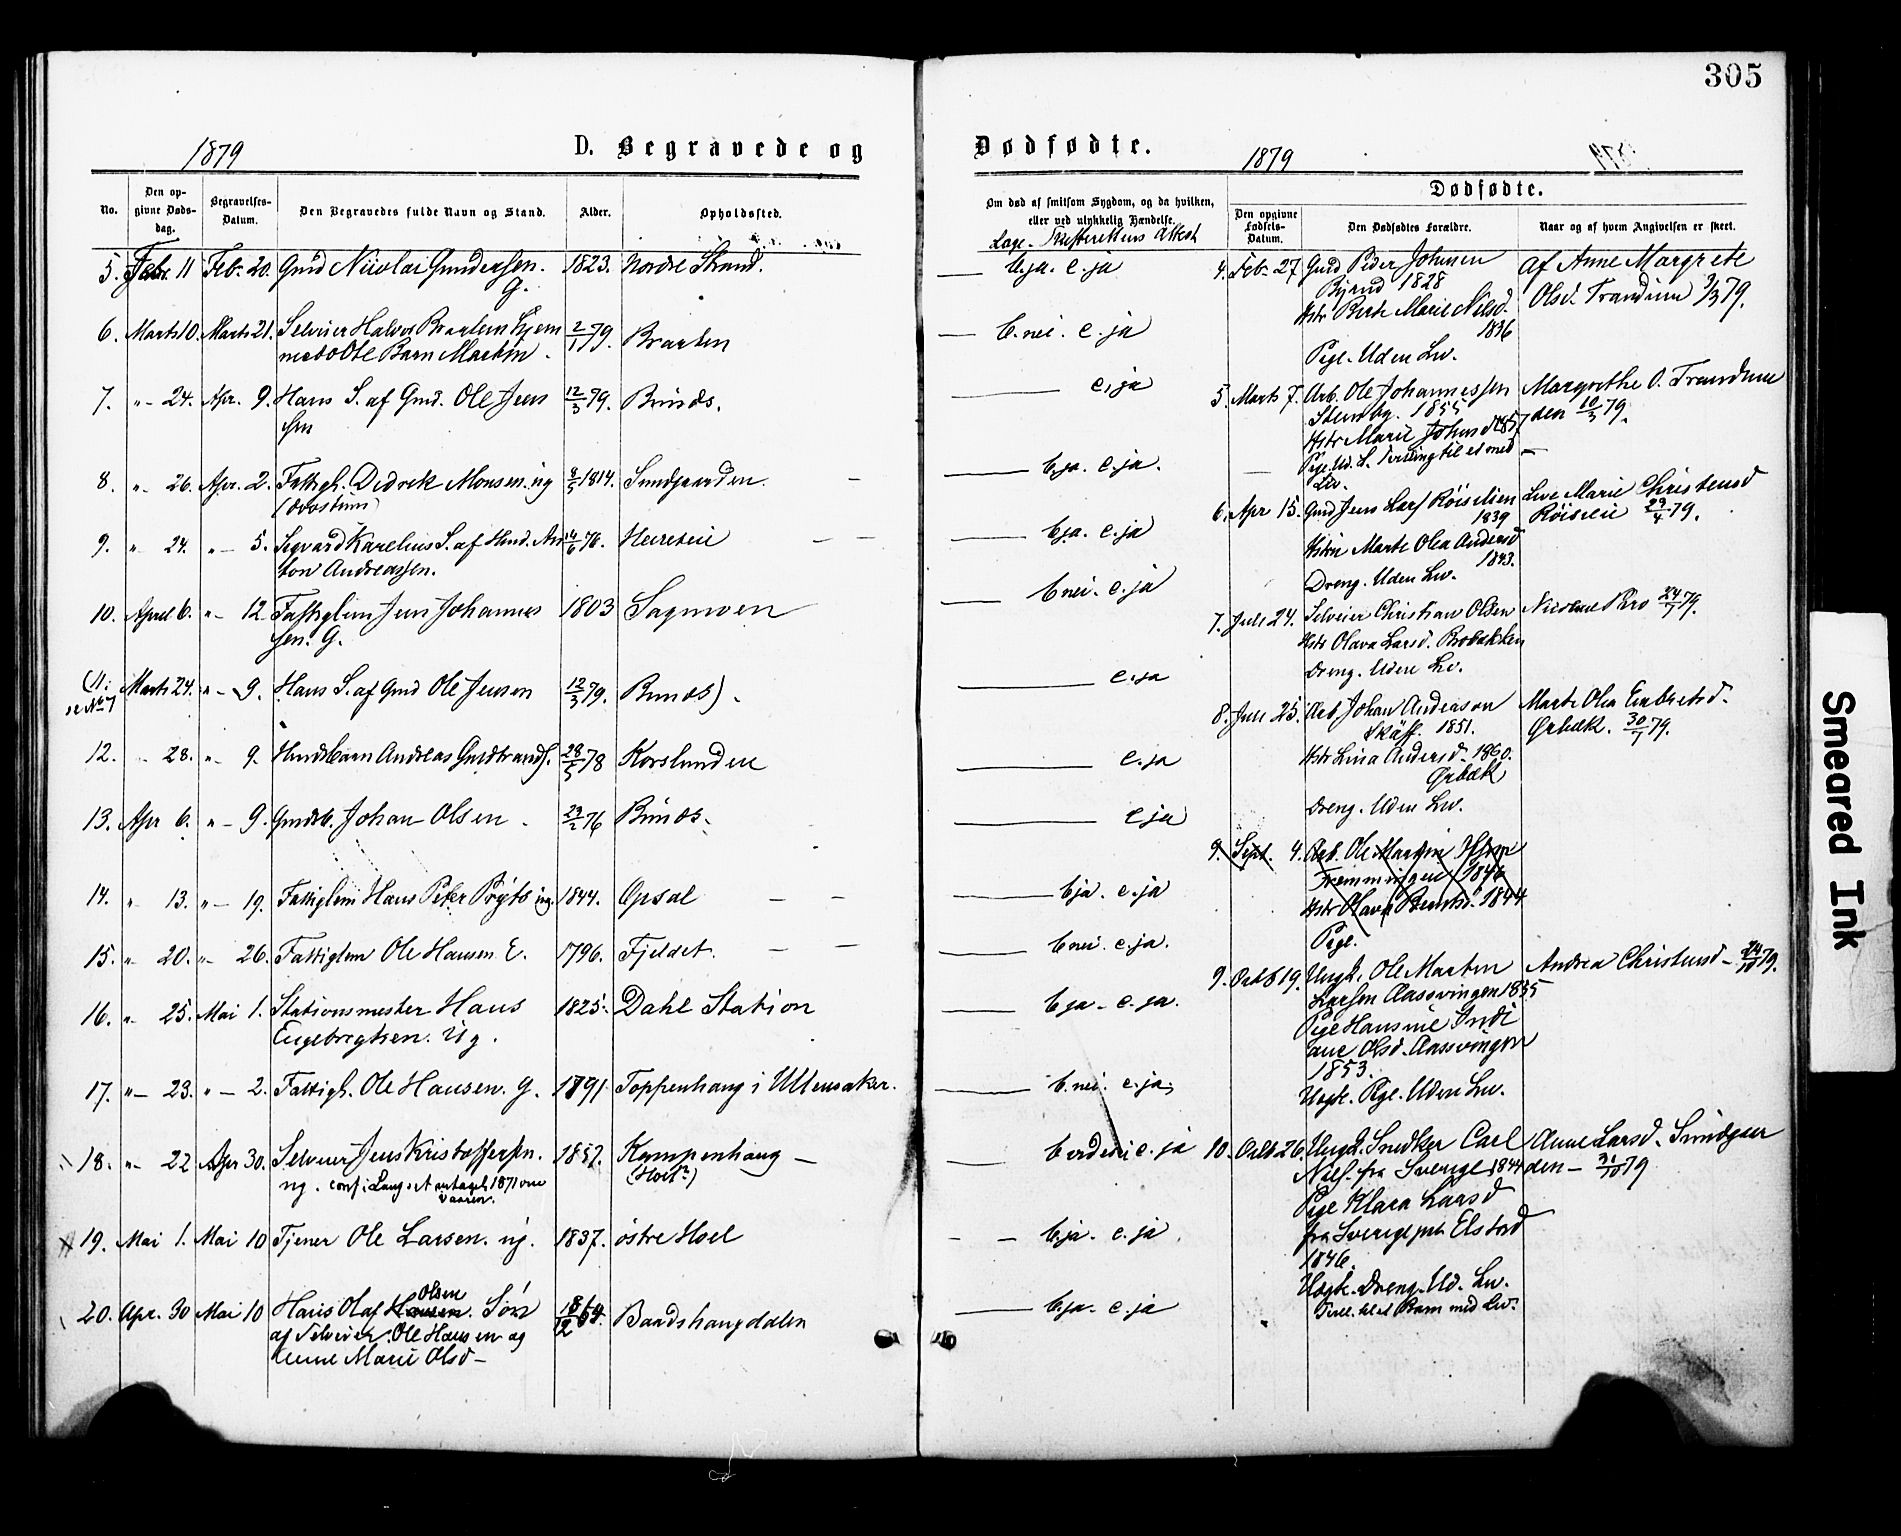 305
1879
D. Begravede og
Dødfødte.
1879
No.
Den opgivne Dødsdag.
Begravelses-Datum.
Den Begravedes fulde Navn og Stand.
Alder.
Opholdssted.
5. Febr. 11 Feb. 20. Gmd Nicolai Gundersen. 1823. Nordre Strand.
G.
6. Marts 10. Marts 21. Selveier Halvor Braatens hjem 2/1 79. Braaten
Barn Martin.
7. " - 24. Apr. 9. Hans S. af Gmd. Ole Jen 12/3 79. Brinds.
sen
8. " 26. Apr. 2. Fattigl. Didrek Monsen. ug 1814. Sundgaarden.
9. " 24. " - 5. Sigvard Karelius S. af Hmd. An 76.
ton Andreassen.
10. April 6. " - 12. Fattiglem Jens Johannes 1803 Sagmoen
sen. G.
(11. Marts 24. " - 9. Hans S. af Gmd Ole Jensen 12/3 79. Brinds).
se No 7
12. " 28. " - 9. Hmdsbarn Andreas Guldbrands. 28/5 78 Korslunden
13. Apr 6. " - 9. Gmdsb. Johan Olsen 23/2 76 Brinds.
14. " 13. " - 19. Fattiglem Hans Peter ug. 1844. Opsal
15. " 20. " - 26. Fattiglem Ole Hansen E. 1796. Fjeldet.
16. " 25. Mai 1. Stationsmester Hans 1825. Dahl Station
Engebregtsen. Ug.
17. " - 23. " - 2. Fattigl. Ole Hansen. G. 1791 Toppenhaug i Ullensaker.
18. " - 22 Apr 30. Selveier Jens Kristoffersen. 1857. Kampenhaug
ug. conf.
19. Mai 1. Mai 10 Tjener Ole Larsen. ug. 1837. østre Hoel
Olsen
20. Apr. 30 Mai 10 Hans Olaf Hansen. Søn 18/12 64. Baadshaugdalen
af Selveier Ole Hansen og
Anne Marie Olsd
Om død af smitsom Sygdom, og da hvilken,
eller ved ulykkelig Hændelse.
Læge - Skifterettens Attest
b. ja. c. ja
b. nei. c. ja
c. ja
b. ja. c. ja.
b. ja. c. ja
b. nei. c. ja
c. ja
c. ja
c ja
b ja. c. ja
b nei. c. ja.
b ja - c. ja.
b. nei. c. ja
c. ja
b. ja. c. ja.
b. ja. c. ja
Dødfødte.
Den opgivne Fødsels-Datum.
Den Dødfødtes Forældre.
Naar og af hvem Angivelsen er skeet.
4. Feb. 27 Gmd Peder Johnsen af Anne Margrete
1828 Olsd. Trandum 3/3 79.
Hstr Berte Marie Nilsd.
1836
Pige. Uden Liv.
5. Marts 7. Arb. Ole Johannessen Margrethe O. Trandum
Stensby. 1855 den 10/3 79.
Hstr Marie Johnsd 1857
Pige. Ud. L. Tvilling til et med
Liv.
6. Apr 15. Gmd Jens Lars Röiseien Live Marie Christensd
1839 Röiseie 29/4 79.
Hstru Marte Olea Andersd
1843.
Dreng. Uden Liv.
7. Juli 24. Selveier Christian Olsen Nicoline Bro 24/7 79.
Hstr Olava Larsd. Brobakken
Dreng. Uden Liv.
8. Juli 25. Arb. Johan Anderson Marte Olea Embretsd.
1851. Ørbæk. 30/7 79.
Hstr Lina Andersd. 1860.
Ørbæk
Dreng. Uden Liv.
9. Sept. 4. Arb. Ole Martin
1846
Hstr Olava Berntsd. 1844
Pige.
9. Octb 19. Ungk. Ole Marten Andrea Christensd - 24/10 79.
Larsen Aassvingen 1855
Pige Hansine
ane Olsd. Aassvingen
1853.
Uægte. Pige. Uden Liv.
10. Octb 26. Ungk. Snedker Carl Anne Larsd. Sundgaar
Nils. fra Sverige 1844 den - 31/10 79
Pige Klara Larsd
fra Sverige Elstad
1846.
Uægte. Dreng. Ud. Liv.
Tvill. til et Barn med Liv.
Smeared Ink